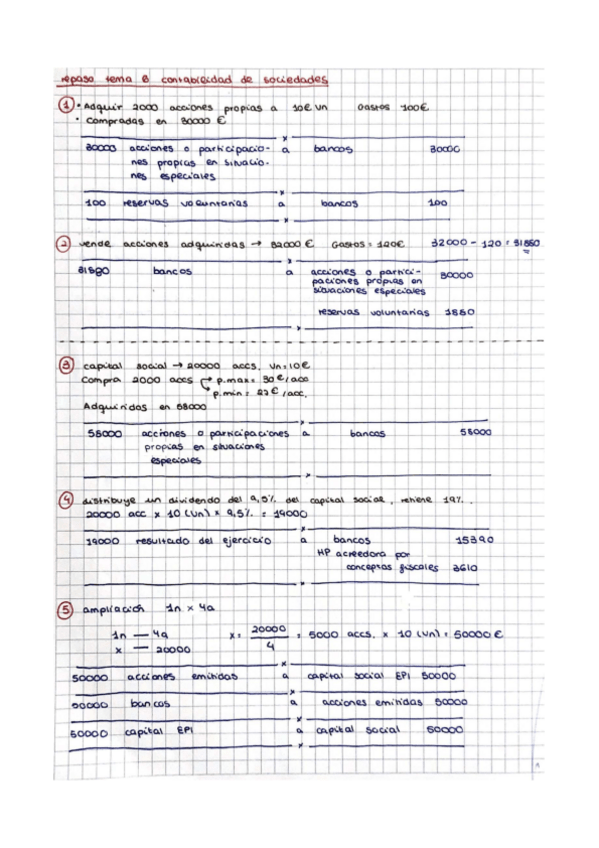 repaso tema 8 contabilidad de sociedades
① • Adquir 2000 acciones propias a 10€ Vn Gastos 100€
• Compradas en 30000 €
30000 acciones o participacio- a bancos 30000
nes propias en situacio-
nes especiales
100 reservas voluntarias a bancos 100
② vende acciones adquiridas → 32000 € Gastos = 120€ 32000 - 120 = 31880
31880 bancos a acciones o partici- 30000
paciones propias en
situaciones especiales
reservas voluntarias 1880
③ capital social → 20000 accs. Vn=10€
Compra 2000 accs p.max= 30€/acc
p.min = 27€/acc.
Adquiridas en 58000
58000 acciones o participaciones a bancos 58000
propias en situaciones
especiales
④ distribuye un dividendo del 9,5% del capital social, retiene 19%.
20000 acc x 10 (Vn) x 9,5% = 19000
19000 resultado del ejercicio a bancos 15390
HP acreedora por
conceptos fiscales 3610
⑤ ampliación 1n x 4a
1n — 4a x = 20000 / 4 = 5000 accs. x 10 (Vn) = 50000 €
x — 20000
50000 acciones emitidas a capital social EPI 50000
50000 bancos a acciones emitidas 50000
50000 capital EPI a capital social 50000